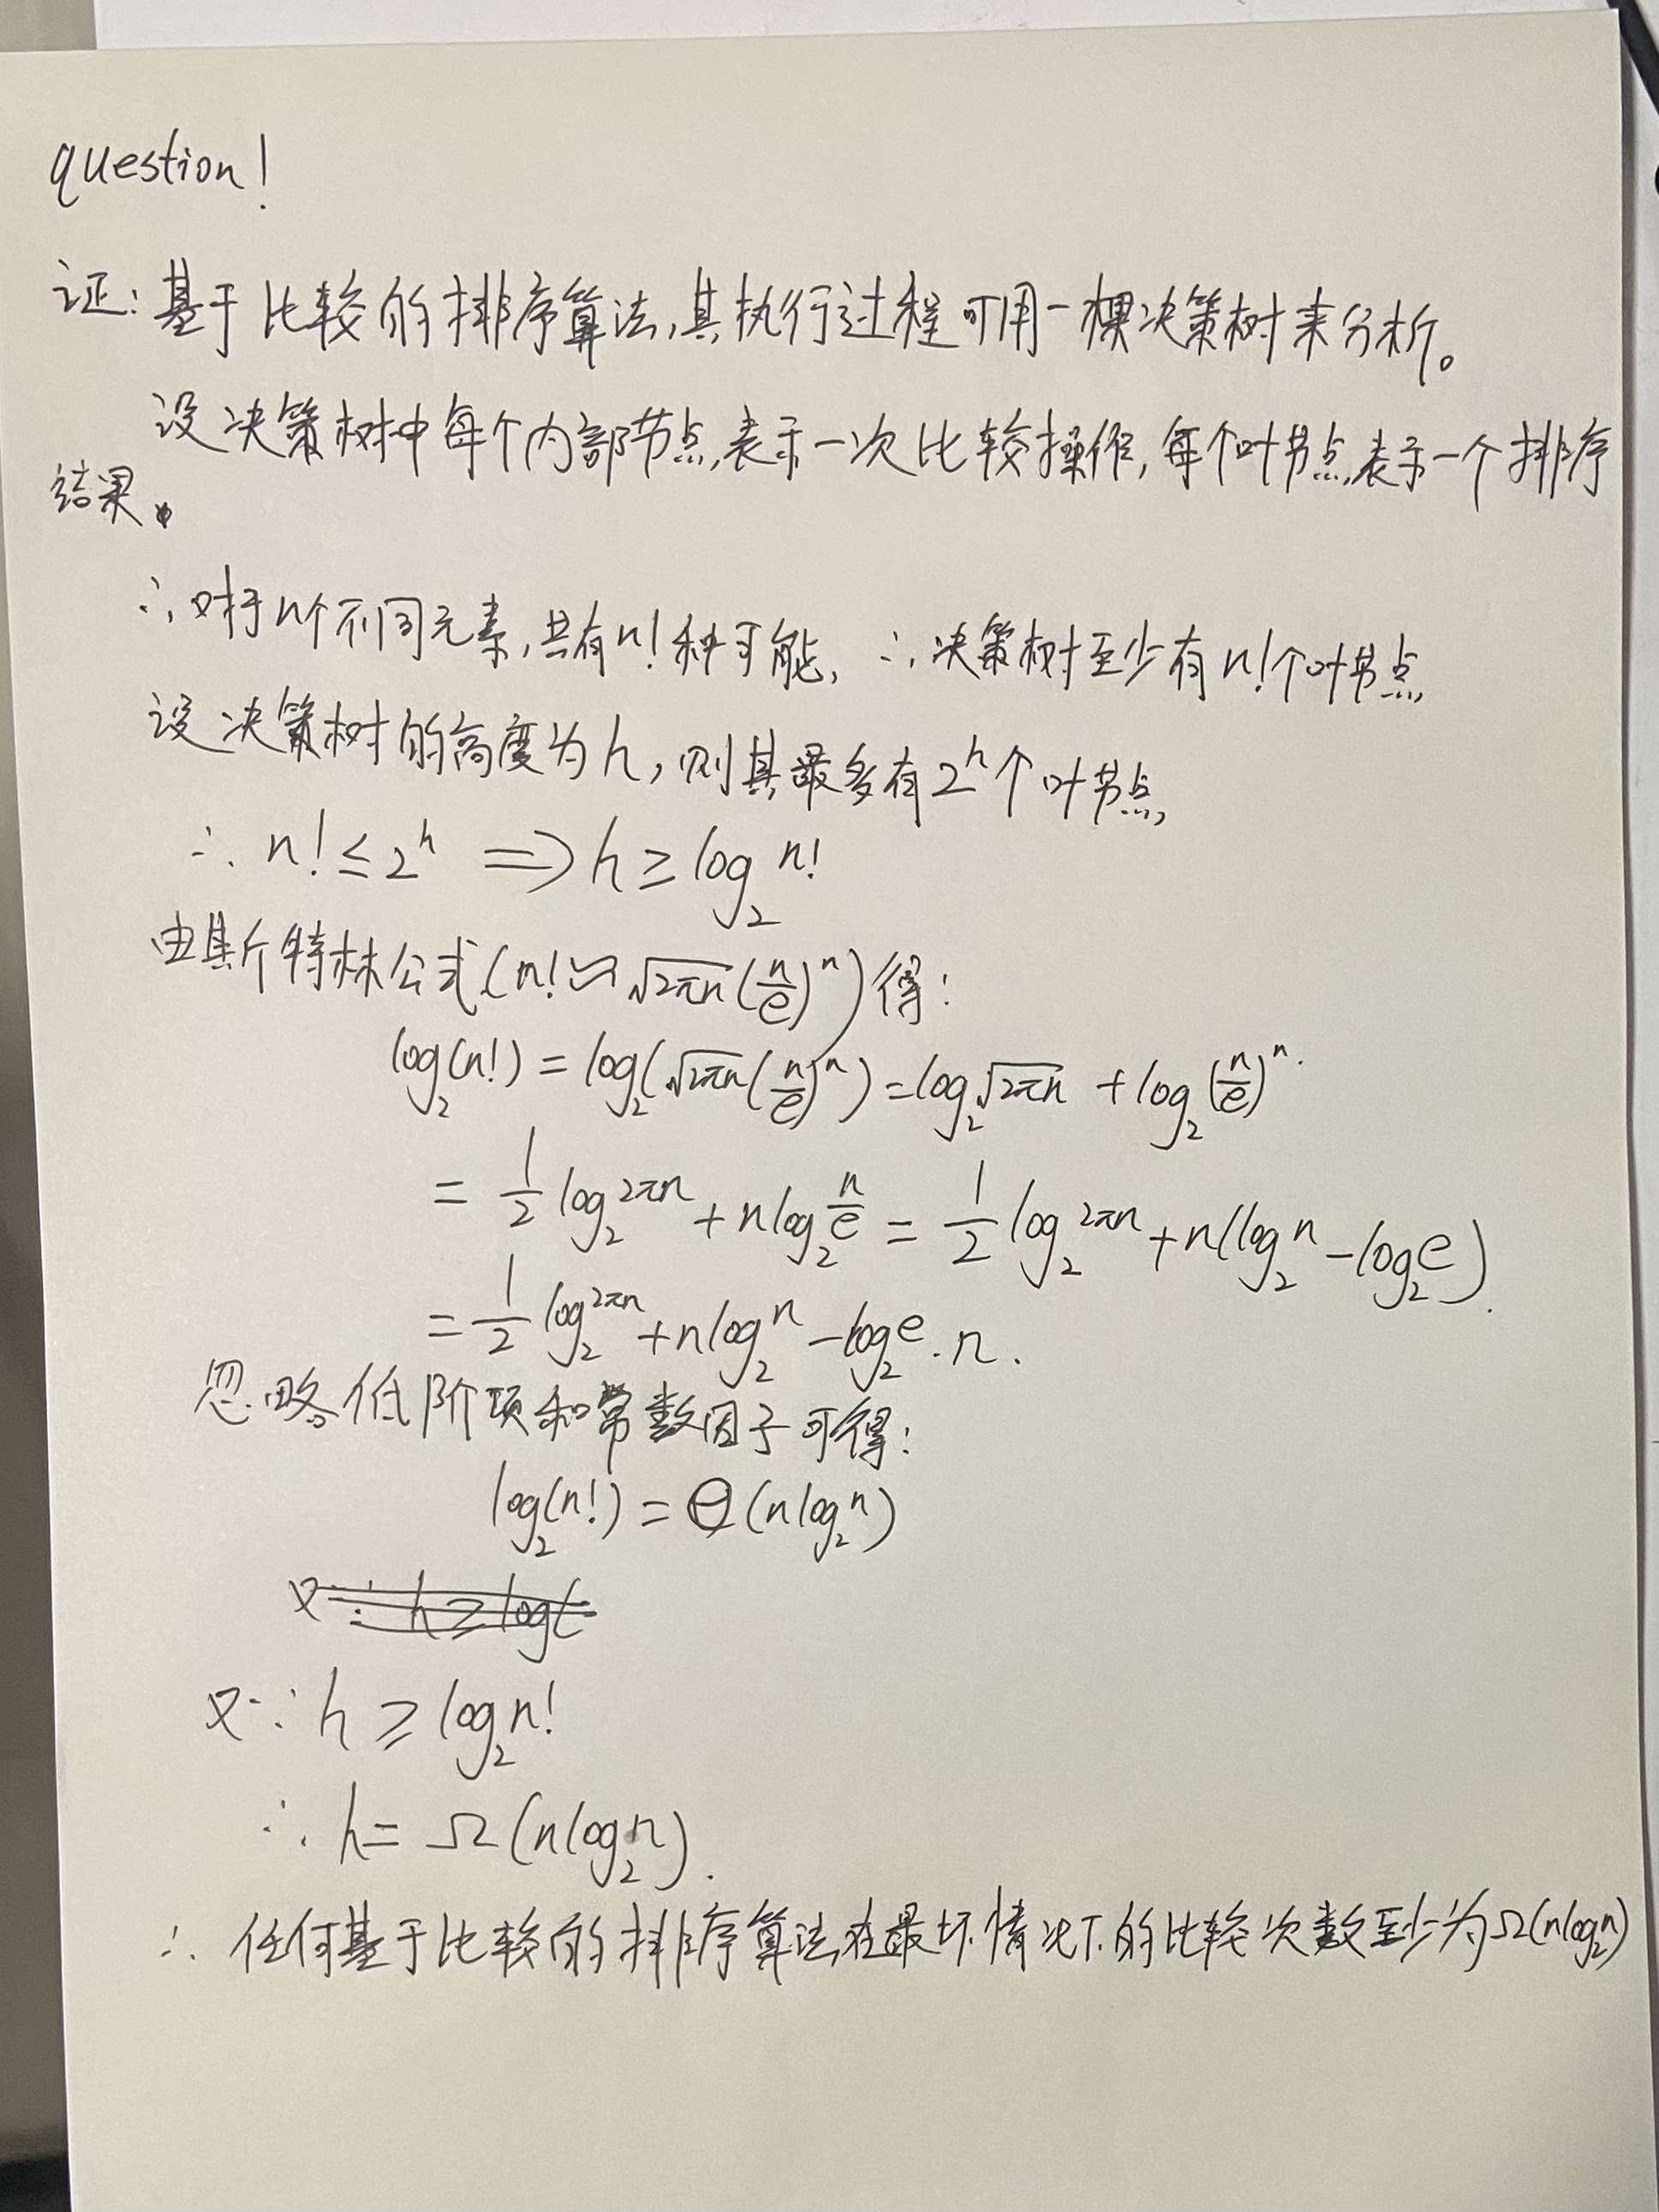 question!
证:基于比较的排序算法,其执行过程可用一棵决策树来分析。
设决策树中每个内部节点表示一次比较操作,每个叶节点表示一个排序
结果。
∴对于n个不同元素,共有n!种可能, ∴决策树至少有n!个叶节点,
设决策树的高度为h,则其最多有2^h个叶节点,
∴ n! ≤ 2^h ⟹ h ≥ log₂ n!
由斯特林公式(n! ≈ √(2πn)(n/e)^n)得:
log₂(n!) = log₂(√(2πn)(n/e)^n) = log₂√(2πn) + log₂(n/e)^n.
= 1/2 log₂ 2πn + n log₂ n/e = 1/2 log₂ 2πn + n(log₂ n - log₂ e).
= 1/2 log₂ 2πn + n log₂ n - log₂ e · n.
忽略低阶项和常数因子可得:
log₂(n!) = Θ(n log₂ n)
又∵ h ≥ log(
又∵ h ≥ log₂ n!
∴ h = Ω(n log₂ n).
∴ 任何基于比较的排序算法在最坏情况下的比较次数至少为Ω(n log₂ n)